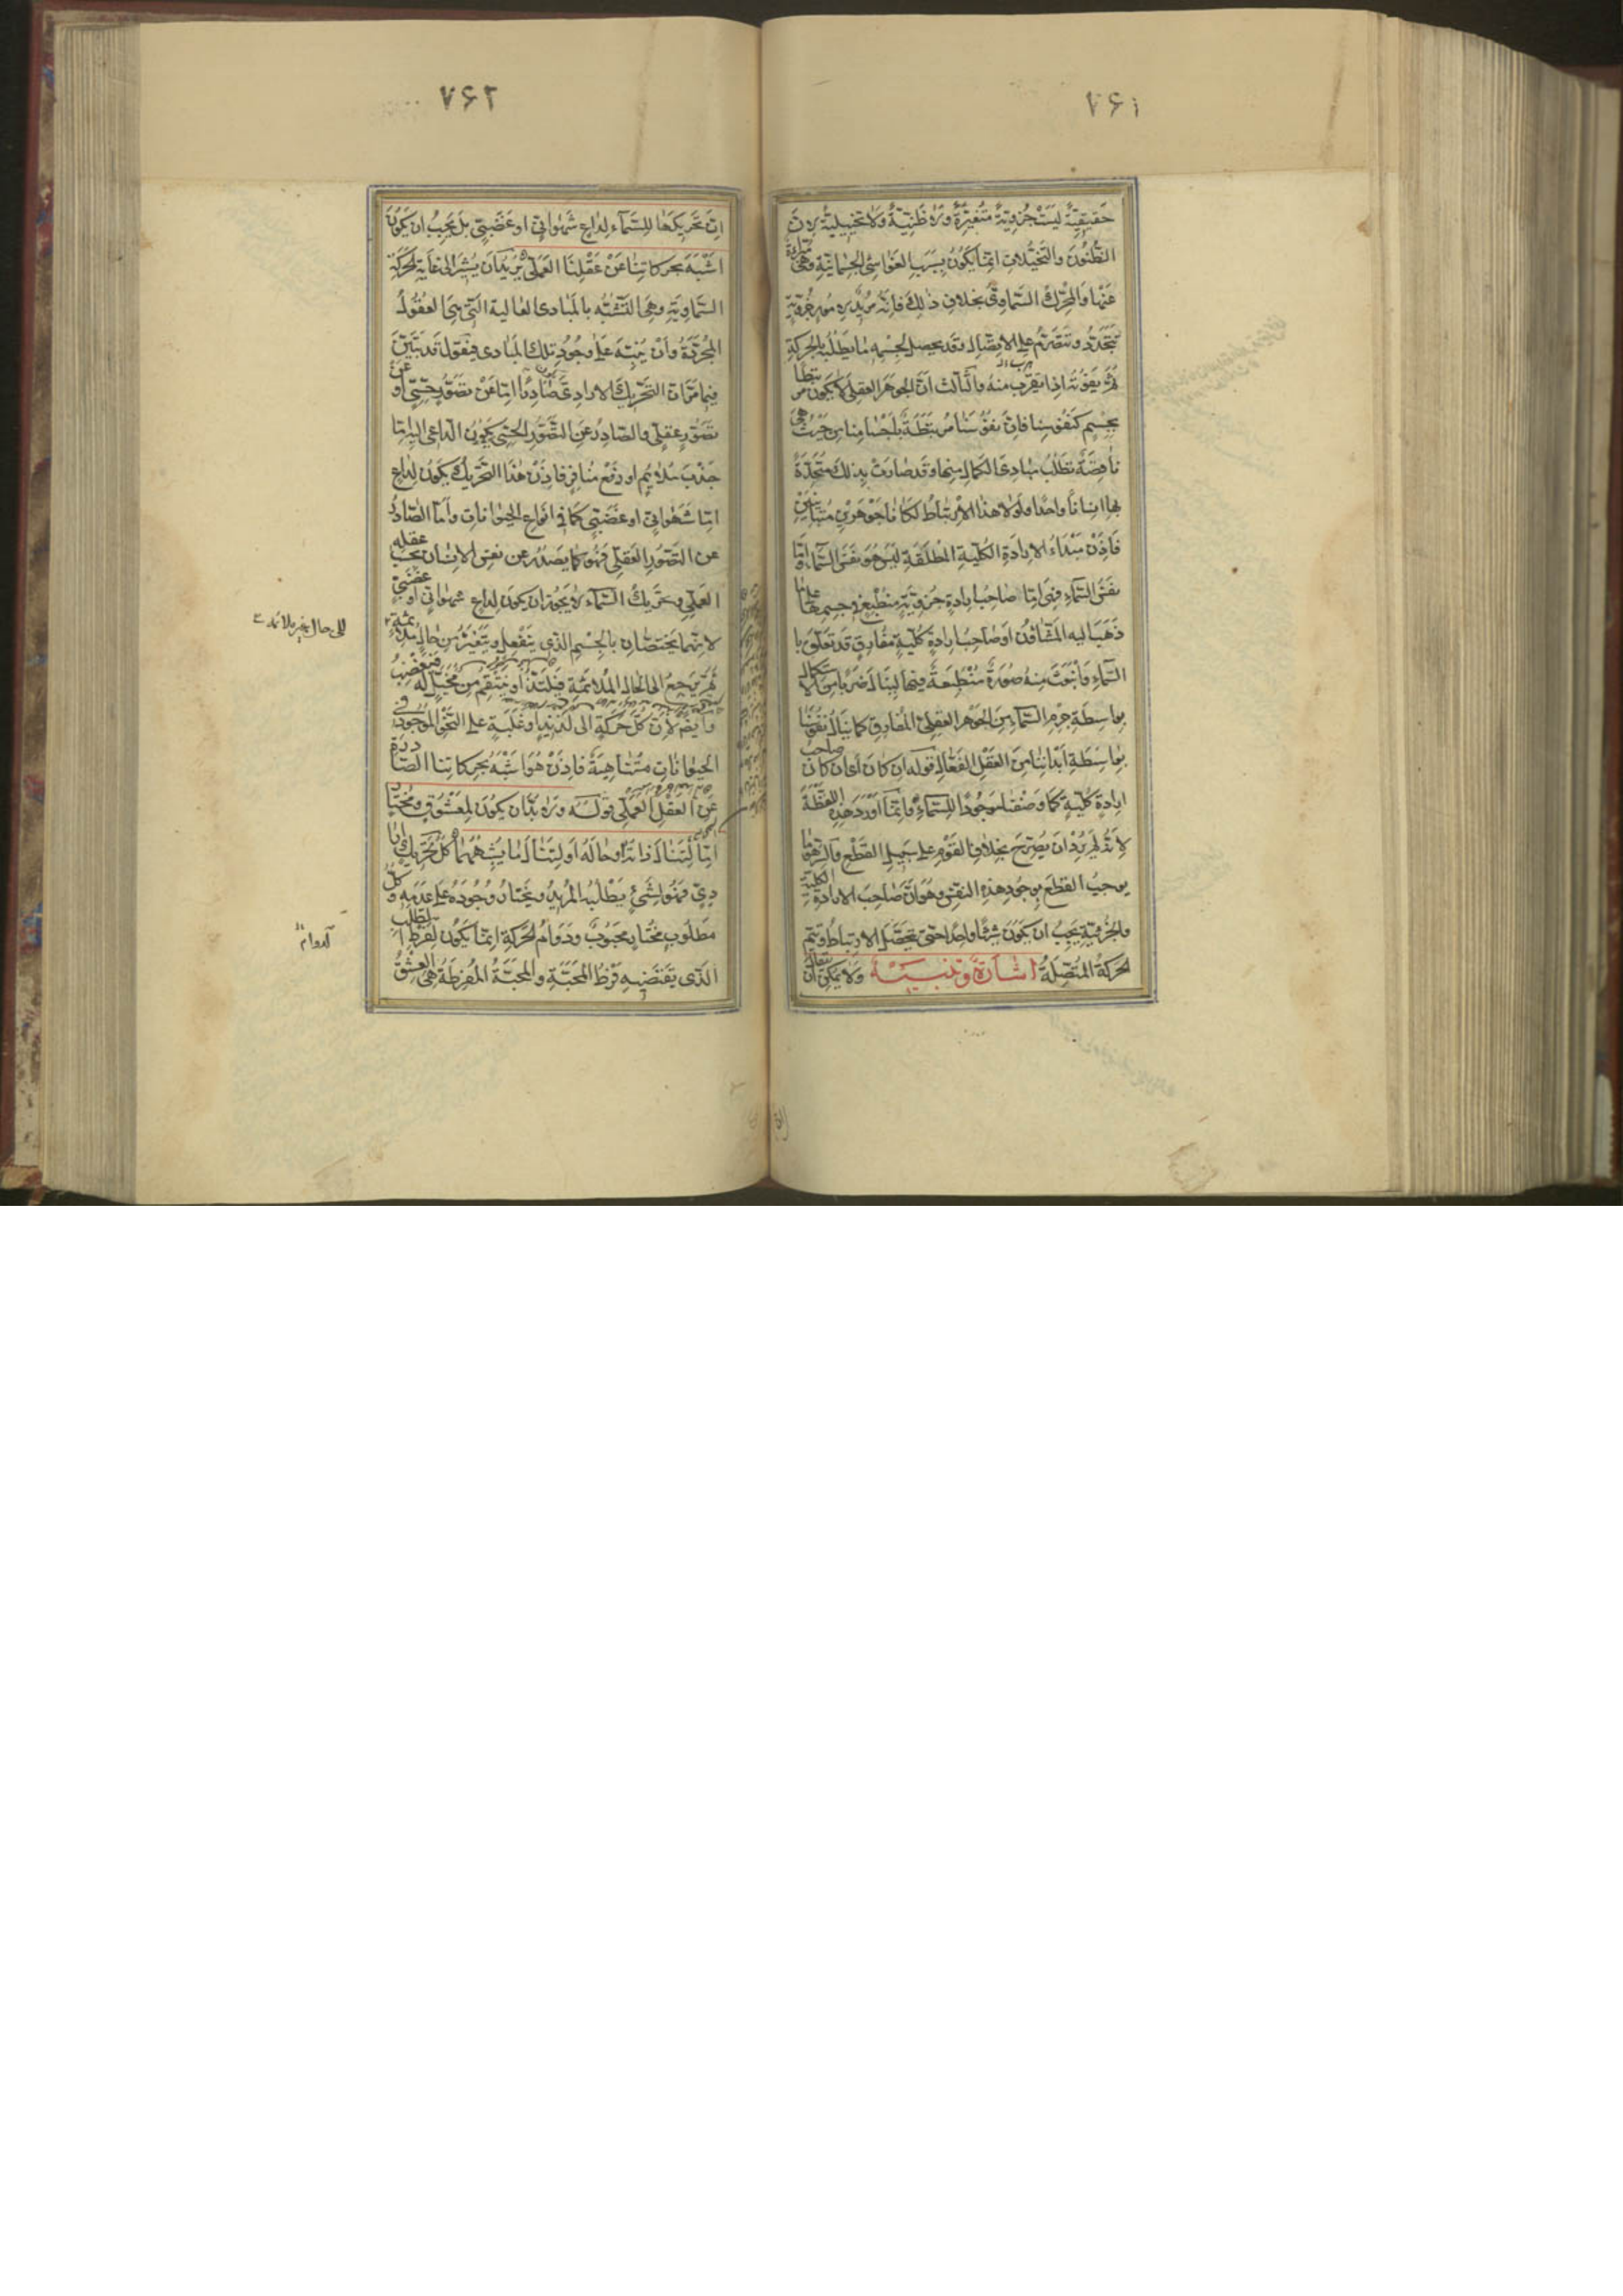 ٧۶١
حَقيقيّةً ليسَتْ جُزئيّةً مُتغيّرةً ولا ظَنّيّةً ولا تخييليةً لانَّ
الظُّنُونَ والتَّخيُّلاتِ انّما يكُونُ بسَببِ الغَواشي الجسمانيّةِ وهى مبرّاةٌ
عَنْها والمُحرِّكُ السَّماوىُّ بخلافِ ذٰلِكَ فانّه مُريدٌ لامورٍ جُزئيّةٍ
تَتَجَدّدُ وتَتَصَرّمُ على الاتّصالِ وقد يحصلُ لجسمه ما يَطْلُبُه بالحركةِ
ثمّ يَفُوتُه اذا يَقرب منهُ والثّالث انَّ الجوهَرَ العقلى لا يكون مرتبطا
بجسمٍ كنفوسِنا فانّ نفُوسَنا مُرتبطةٌ باجسامِنا من حَيْث هى
ناقصَةٌ تَطلُبُ مبادئَ الكمالِ منها وقد صارتْ بذلكَ متّحِدةً
بها انسانًا واحدًا ولَولا هذا الارتباطُ لكانا جَوْهَرينِ مُتباينَيْنِ
فَاِذَنْ مَبْداءُ الارادَةِ الكُلّيةِ المُطلَقَةِ ليسَ هُوَ نَفسَ السَّماءِ وامّا
نفسُ السّماءِ فهى امّا صاحبُ ارادةٍ جُزئيّةٍ منطبعٍ فى جسمها على ما
ذَهَبَ اليه المَشّاؤنَ او صاحبُ ارادةٍ كُليّةٍ مُفارقٍ قد تعلّقَ با
السّماءِ وَانبَعَثَ منهُ صُورَةٌ مُنْطَبِعَةٌ فيها لينالَ ضَربًا من الاستكمال
بواسِطَةِ جِرْمِ السّماءِ مِنَ الجَوْهرِ العقلىِّ المُفارقِ كما ينالُ نفوسُنا
بواسِطَةِ اَبْدانِنا مِنَ العَقْلِ الفَعّالِ قوله ان كانَ اى ان كان صاحبُ
ارادةٍ كلّيةٍ كما وصَفْنا موجُودًا للسّماءِ وانّما اَوْرَدَ هذِه اللفظةَ
لانّه لم يُرِدْ ان يُصرّحَ بخلافِ القَوْمِ على سَبيلِ القَطْعِ
يوجبُ القطعَ بوجُودِ هذِه النفسِ وهو انَّ صاحبَ الارادةِ الكليّةِ
والجُزئيّةِ يَجِبُ ان يكُونَ شَيئًا واحِدًا حتّى يحصَلَ الارتباطُ وتتم
الحركةُ المُتّصِلَةُ اشارةٌ وتنبيهٌ ولا يمكن ان يقال
٧۶٢
انّ تحَريكَها للسَّمآء لداعٍ شَهْوانىٍّ او غَضَبىٍّ بل يجبُ ان يكونَ
اشْبَهَ بحَرَكاتِنا عَنْ عَقْلِنَا العَمَلىِّ يُرَيدُ ان يُشيرَ الى غايةِ الحركةِ
السَّماويّةِ وهى التَّشبُّه بالمَبادى العالية الّتى هى العُقولُ
المُجرّدَةُ وانْ يُنبّه على وجُودِ تلك المَبادى فنَقولُ قد تبيّن
فيما مرّ انّ التَّحْرِيكَ الارادىَّ صادرٌ امّا عَنْ تصَوُّرٍ حِسّىٍّ او عن
تصَوُّرٍ عقلىٍّ والصّادرُ عَنِ التَّصوُّرِ الحسّى يكُونُ الدّاعى اليه امّا
جَذْبَ مُلائمٍ او دَفْع مُنافرٍ فاذَنْ هٰذا التَّحرِيكُ يكونُ لداعٍ
امّا شَهْوانىٍّ او غضَبىٍّ كما فى انواعِ الحيواناتِ وامّا الصّادرُ
عن التَّصَوّرِ العَقلىِّ فهُو كما يَصْدُرُ عن نفسِ الانسانِ بحَسب عقله
العَملىِّ وتحريكُ السَّماء لا يجُوزُ ان يكونَ لداعٍ شهوانىٍّ او غضبىٍّ
لانّهما يَختَصّانِ بالجِسْمِ الذى يَنْفَعِلُ ويَتَغَيّرُ من حالٍ ملائمةٍ
ثمّ يَرجعُ الى الحالِ المُلائمةِ فيلتَذُّ او يَنتَقِمُ من مُخَيّلٍ لَه فيَغْضَبُ
وايضًا لانّ كلَّ حرَكةٍ الى لذيذٍ او غَلَبةٍ على النّحْوِ المَوجُودِ فى
الحيواناتِ مُتَناهِيةٌ فاذَنْ هُوَ اشبَهُ بحركاتنا الصّادرة
عَنِ العَقْلِ العَمَلى قوله ولا بُدّ ان يكونَ لمعْشُوقٍ ومُختارٍ
امّا ليُنالَ ذاتُه او حالُه او ليُنالَ ما يُشبهُهُما كلُّ تحريكٍ ارا
دىٍّ فهُوَ لشَىْءٍ يَطْلُبُه المُريدُ ويَختارُ وجُودَه على عَدَمِه وكلُّ
مَطلُوبٍ مُختارٍ محبُوبٌ ودَوامُ الحركةِ انّما يكونُ لفَرْطِ الطلب
الّذى يقتَضيه فَرْطُ المَحَبّةِ والمحَبّةُ المُفرِطَةُ هى العِشْقُ
الى حال غير ملائمة